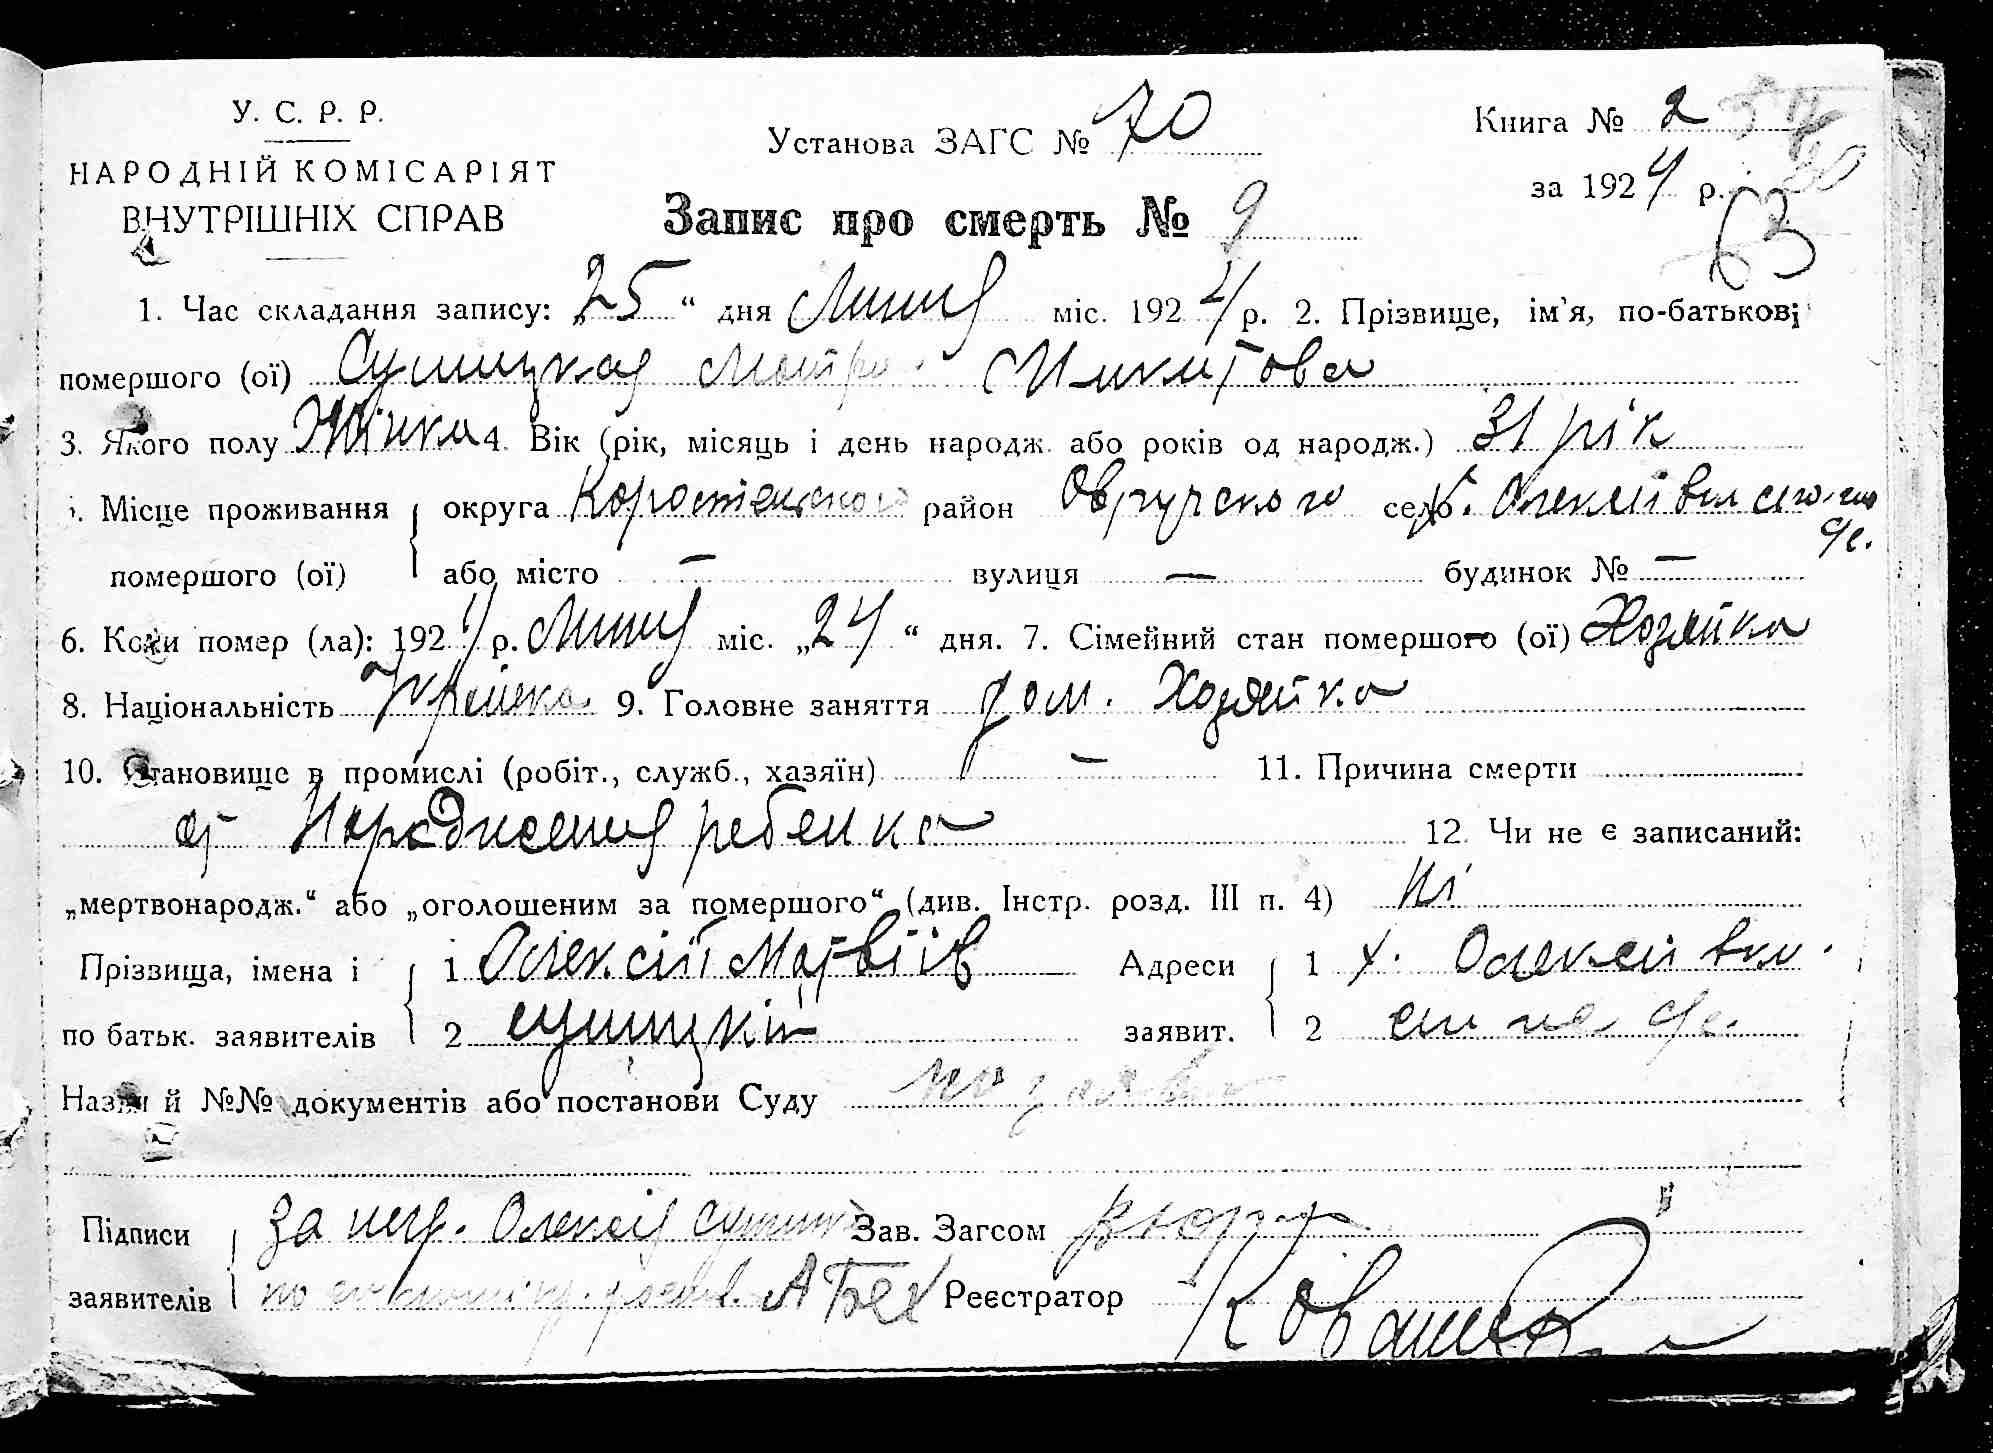 У. С. Р. Р.
НАРОДНІЙ КОМІСАРІЯТ
ВНУТРІШНІХ СПРАВ
Установа ЗАГС № 70
Книга № 2
за 1924 р.
63
Запис про смерть № 9
1. Час складання запису: „25“ дня Липня міс. 1924 р. 2. Прізвище, ім'я, по-батькові
помершого (ої) Сушицкая Мотря Микитова
3. Якого полу Жінка 4. Вік (рік, місяць і день народж. або років од народж.) 31 рік
Місце проживання округа Коростенського район Овручского село х. Олексеивка
помершого (ої) або місто — вулиця — будинок № —
6. Коли помер (ла): 1924 р. Липня міс. „24“ дня. 7. Сімейний стан помершого (ої) Хозяйка
8. Національність 9. Головне заняття дом. Хозяйка
10. Становище в промислі (робіт., служб., хазяїн) — 11. Причина смерти
от Нарождения ребенка 12. Чи не є записаний:
„мертвонародж.“ або „оголошеним за помершого“ (див. Інстр. розд. III п. 4) ні
Прізвища, імена і 1 Олексій Матвіїв Адреси 1 х. Олексеивка
по батьк. заявителів 2 сушицкий заявит. 2
Назви й №№ документів або постанови Суду по заяві
Підписи За негр. Олексія Зав. Загсом
заявителів А Бех Реєстратор